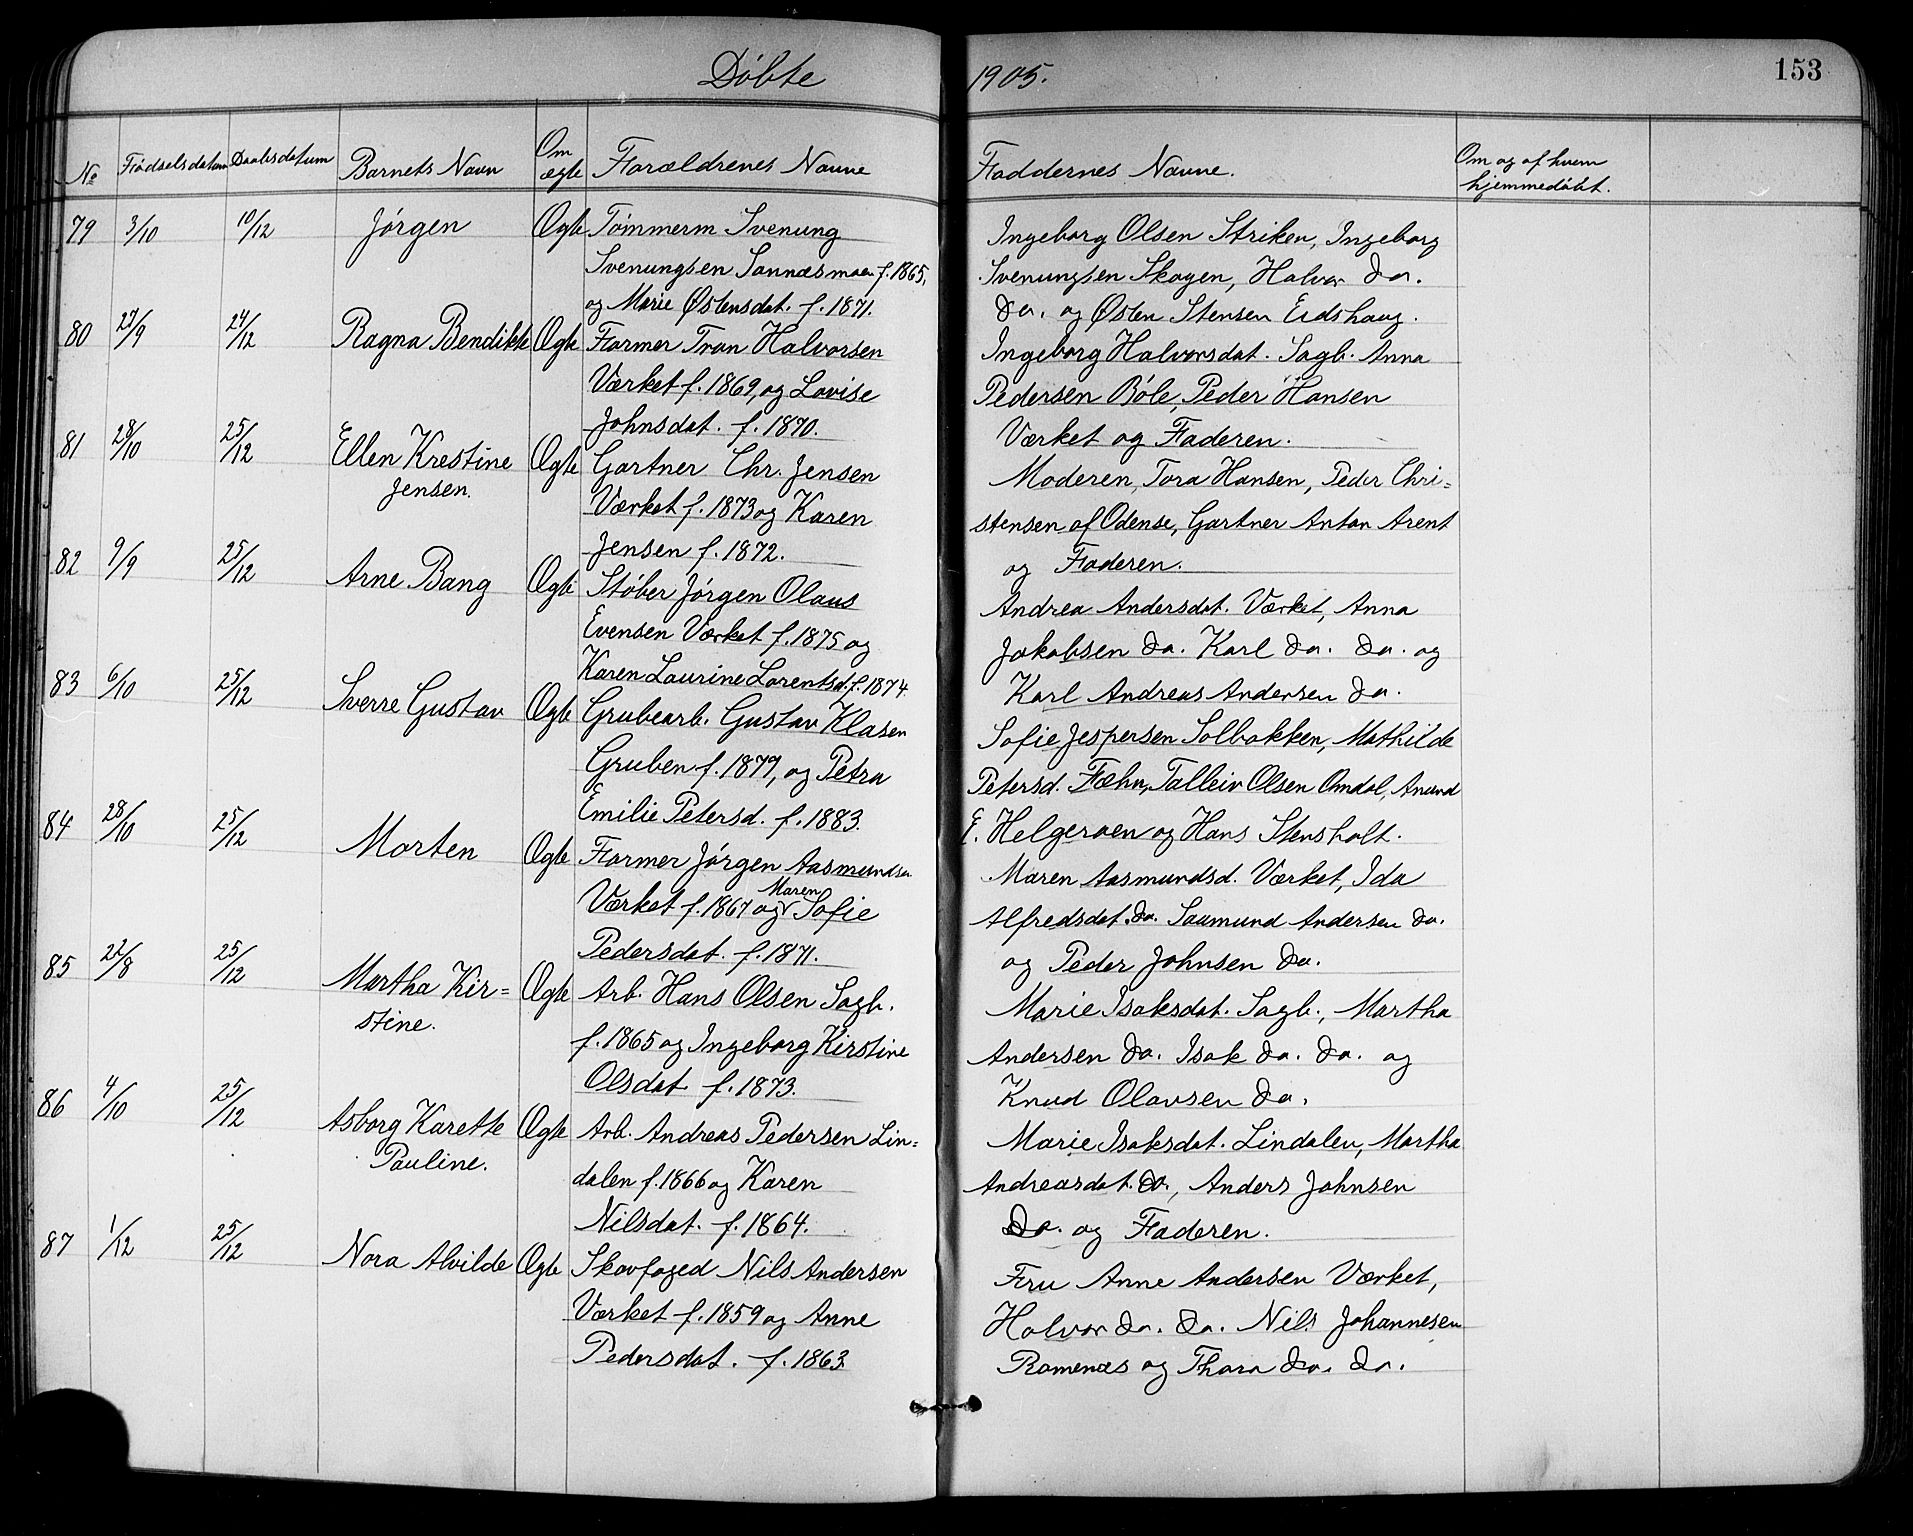 Døbte 1905. 153
No Fødselsdatum Daabsdatum Barnets Navn Om ægte Forældrenes Navne Faddernes Navne. Om og af hvem hjemmedøbt.
79 3/10 10/12 Jørgen Ægte Tømmerm Svenung
Svenungsen Sannæsmoen f. 1865,
og Marie Østensdat. f. 1871.
Ingeborg Olsen Striken, Ingeborg
Svenungsen Skogen, Halvor do.
do. og Østen Stensen Eidshaug.
80 27/9 24/12 Ragna Bendikte Ægte Former Tron Halvorsen
Værket f. 1869, og Lovise
Johnsdat. f. 1870.
Ingeborg Halvorsdat. Sagb. Anna
Pedersen Bøle, Peder Hansen
Værket og Faderen.
81 28/10 25/12 Ellen Krestine Ægte Gartner Chr. Jensen
Jensen.
Værket f. 1873 og Karen
Jensen f. 1872.
Moderen, Tora Hansen, Peder Chri=
stensen af Odense, Gartner Anton Arent
og Faderen.
82 9/9 25/12 Arne Bang Ægte Støber Jørgen Olaus
Evensen Værket f. 1875 og
Karen Laurine Lorentsd. f. 1874.
Andrea Andersdat. Værket, Anna
Jakobsen do. Karl do. do. og
Karl Andreas Andersen do.
83 6/10 25/12 Sverre Gustav Ægte Grubearb. Gustav Klasen
Gruben f. 1877, og Petra
Emilie Petersd. f. 1883.
Sofie Jespersen Solbakken, Mathilde
Petersd. Fæhn, Talleiv Olsen Omdal, Anund
E. Helgeroen og Hans Stensholt.
84 28/10 25/12 Morten Ægte Former Jørgen Aasmundsen
Værket f. 1867 og Maren Sofie
Pedersdat. f. 1871.
Maren Aasmundsd. Værket, Ida
Alfredsdat. do. Saamund Andersen do.
og Peder Johnsen do.
85 22/8 25/12 Martha Kir= Ægte Arb. Hans Olsen Sagb.
stine.
f. 1865 og Ingeborg Kirstine
Olsdat. f. 1873.
Marie Isaksdat. Sagb., Martha
Andersen do. Isak do. do. og
Knud Olavsen do.
86 4/10 25/12 Asborg Karette Ægte Arb. Andreas Pedersen Lin=
Pauline.
dalen f. 1866 og Karen
Nilsdat. f. 1864.
Marie Isaksdat. Lindalen, Martha
Andreasdat. do., Anders Johnsen
Do. og Faderen.
87 1/12 25/12 Nora Alvilde Ægte Skovfoged Nils Andersen
Værket f. 1859 og Anne
Pedersdat. f. 1863.
Fru Anne Andersen Værket,
Halvor do. do. Nils Johannesen
Romenæs og Thora do. do.